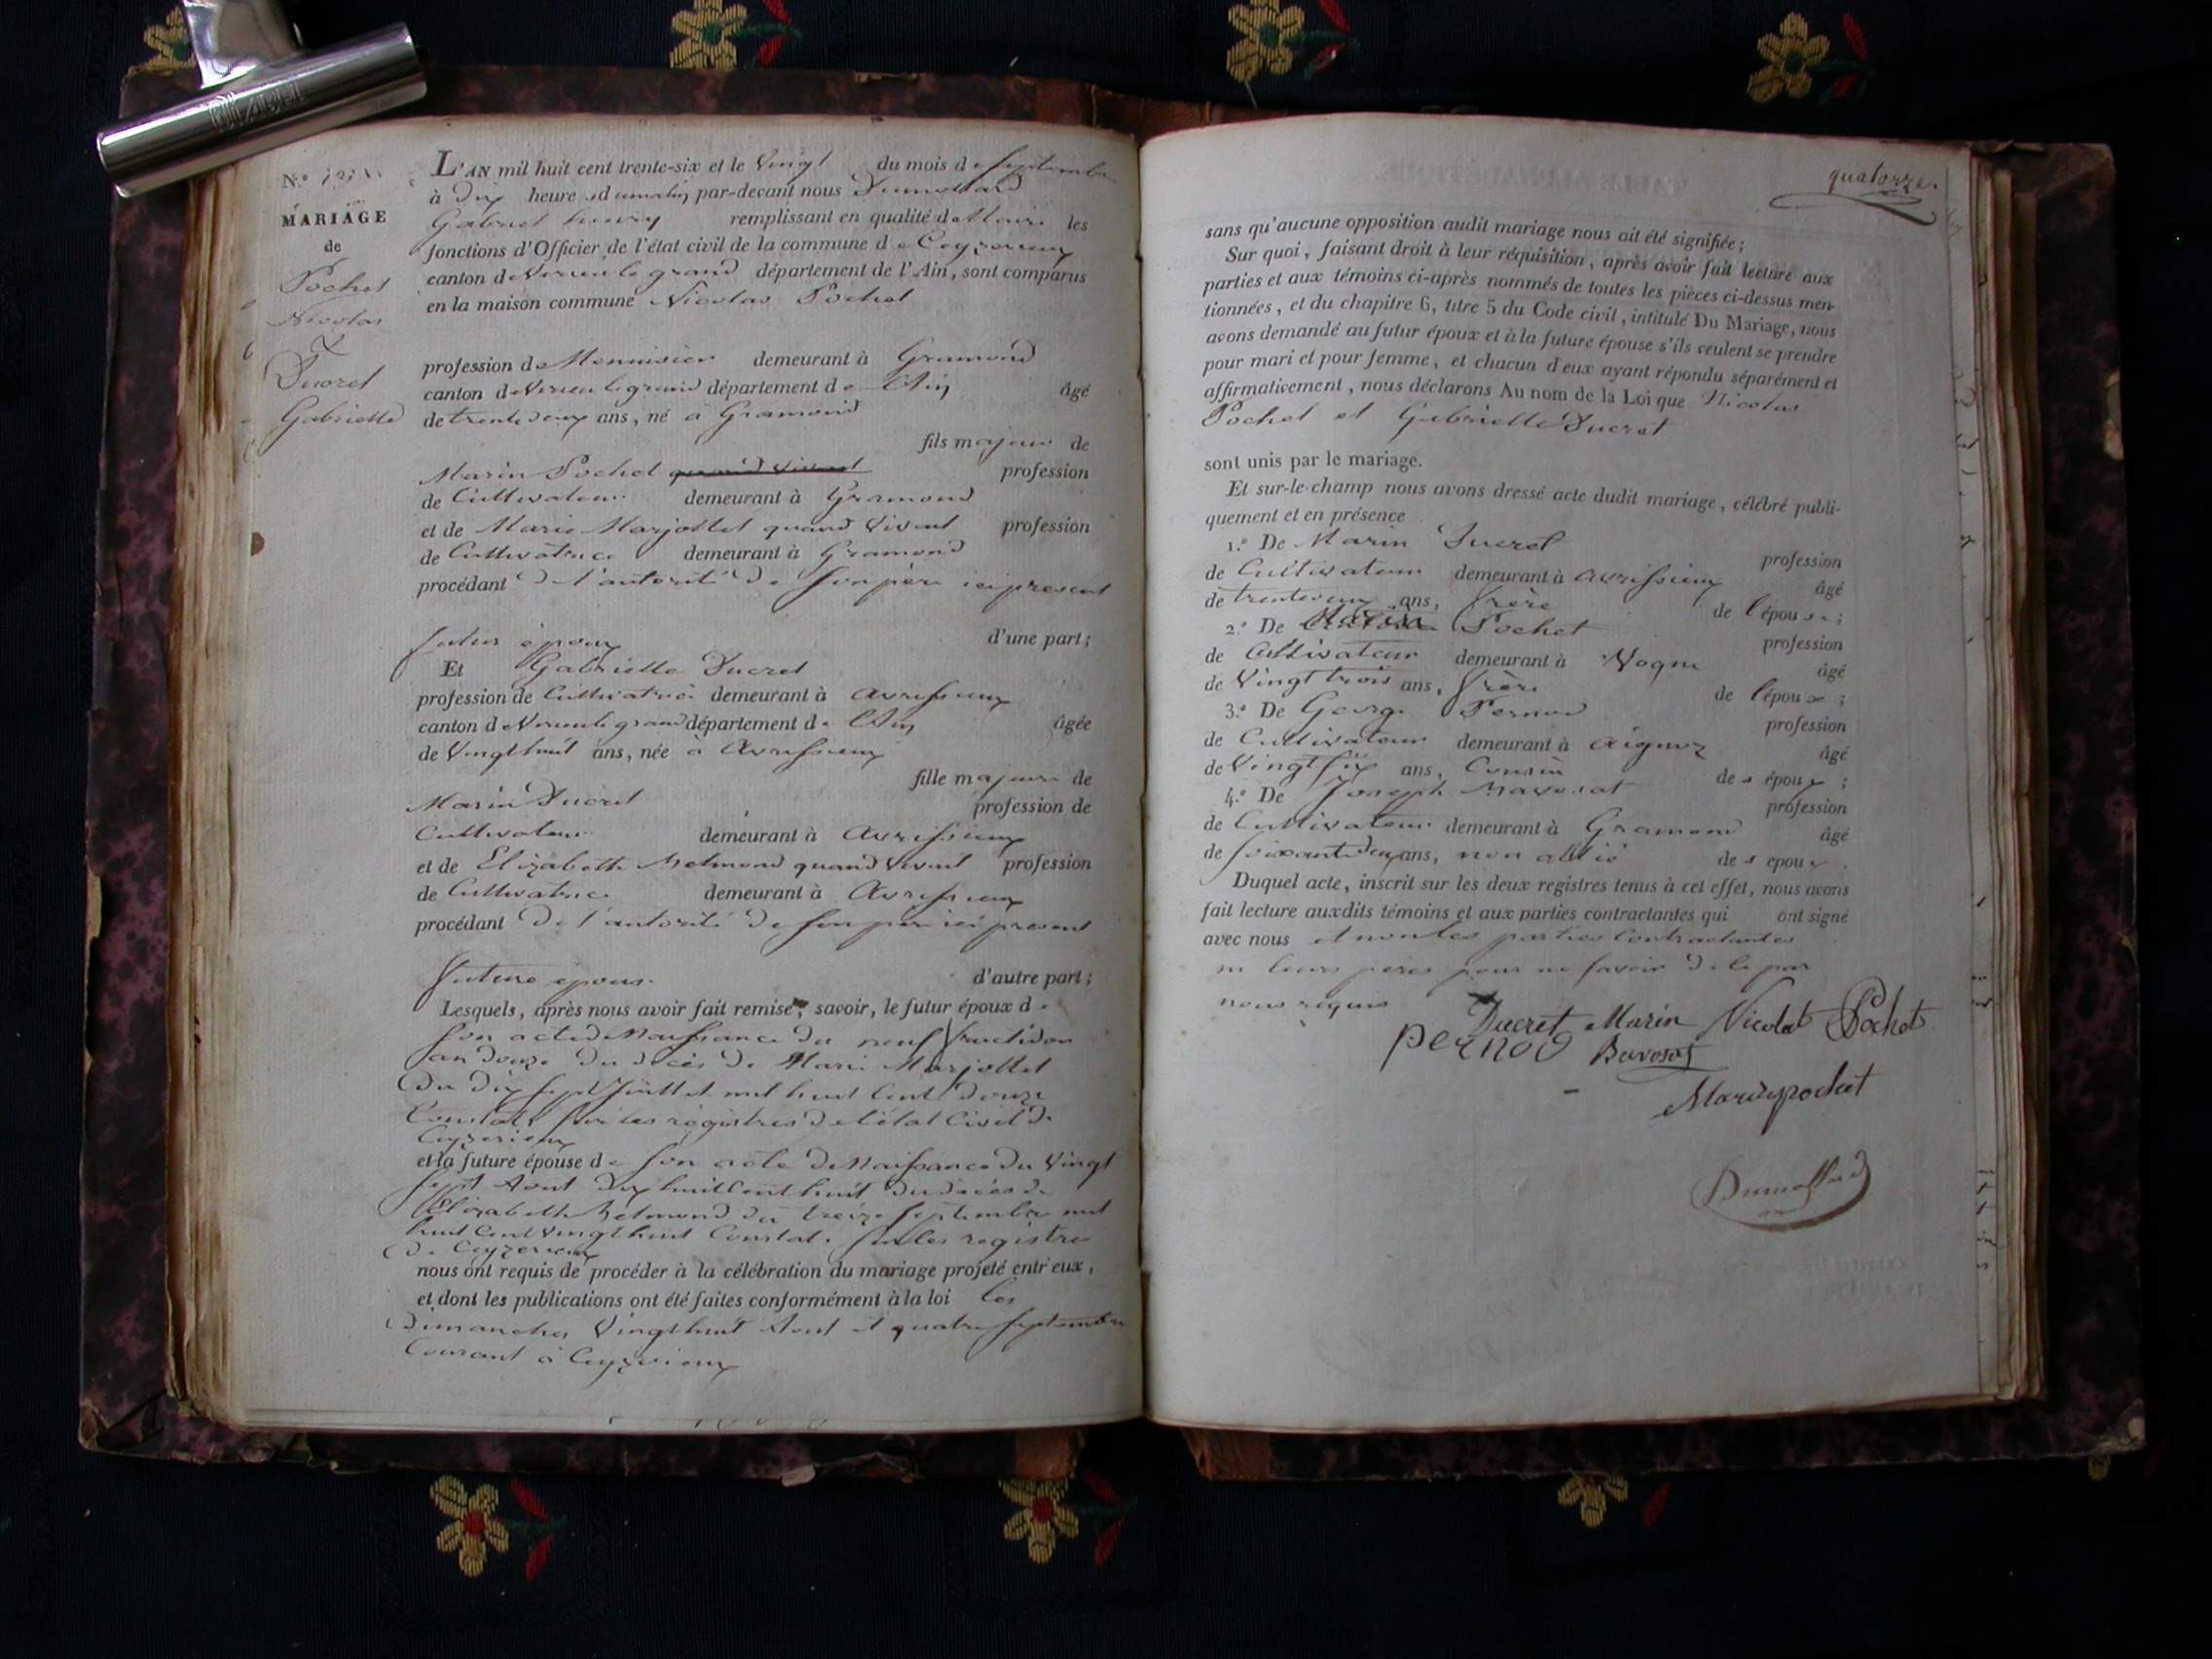 N.º
MARIAGE
de
Pochet
Nicolas
Ducret
Gabrielle
L'AN mil huit cent trente-six et le Vingt du mois de Septembre
à Dix heures du matin par-devant nous Dumollard
Gabriel henry remplissant en qualité de Maire les
fonctions d'Officier de l'état civil de la commune de Ceyzerieux
canton de Virieu le grand département de l'Ain, sont comparus
en la maison commune Nicolas Pochet
profession de Menuisier demeurant à Gramond
canton de Virieu le grand département de l'Ain âgé
de trente deux ans, né à Gramond
fils majeur de
Marin Pochet quand vivait profession
de Cultivateur demeurant à Gramond
et de Marie Marjollet quand Vivait profession
de Cultivatrice demeurant à Gramond
procédant de l'autorité de Son père ici present
futur époux d'une part;
Et Gabrielle Ducret
profession de Cultivatrice demeurant à avrissieux
canton de Virieu le grand département de l'Ain âgée
de Vingt huit ans, née à Avrissieux
fille majeure de
Marin Ducret profession de
Cultivateur demeurant à Avrissieux
et de Elizabeth Metmond quand Vivait profession
de Cultivatrice demeurant à Avrissieux
procédant de l'autorité de Son père ici présent
future epouse d'autre part;
Lesquels, après nous avoir fait remise, savoir, le futur époux de
Son acte de Naissance du neuf fructidor
an douze du décès de Marie Marjollet
Du Dix Sept Juillet mil huit Cent Douze
Constaté Sur les régistres de l'état Civil de
Ceyzerieux
et la future épouse de Son acte de Naissance du Vingt
Sept Aout Dix huit Cent huit du décès de
Elizabeth Metmond du treize Septembre mil
huit Cent Vingt huit Constaté Sur les registres
de Ceyzerieux
nous ont requis de procéder à la célébration du mariage projeté entr'eux,
et dont les publications ont été faites conformément à la loi les
Dimanches Vingt huit Aout et quatre Septembre
Courant à Ceyzerieux
quatorze.
sans qu'aucune opposition audit mariage nous ait été signifiée;
Sur quoi, faisant droit à leur réquisition, après avoir fait lecture aux
parties et aux témoins ci-après nommés de toutes les pièces ci-dessus men-
tionnées, et du chapitre 6, titre 5 du Code civil, intitulé Du Mariage, nous
avons demandé au futur époux et à la future épouse s'ils veulent se prendre
pour mari et pour femme, et chacun d'eux ayant répondu séparément et
affirmativement, nous déclarons Au nom de la Loi que Nicolas
Pochet et Gabrielle Ducret
sont unis par le mariage.
Et sur-le-champ nous avons dressé acte dudit mariage, célébré publi-
quement et en présence
1.º De Marin Ducret profession
de Cultivateur demeurant à avrissieux âgé
de trente deux ans, frère de l'épouse;
2.º De Marin Pochet profession
de Cultivateur demeurant à Vogne âgé
de Vingt trois ans, frère de l'époux;
3.º De George Pernod profession
de Cultivateur demeurant à aignoz âgé
de Vingt Six ans, Cousin des époux;
4.º De Joseph profession
de Cultivateur demeurant à Gramond âgé
de Soixante Dix ans, non allié des epoux.
Duquel acte, inscrit sur les deux registres tenus à cet effet, nous avons
fait lecture auxdits témoins et aux parties contractantes qui ont signé
avec nous et non les parties Contractantes
ni leurs pères pour ne Savoir de le par
nous requis
Ducret Marin Nicolas Pochet
pernod Bavosat
Marin pochet
Dumollard